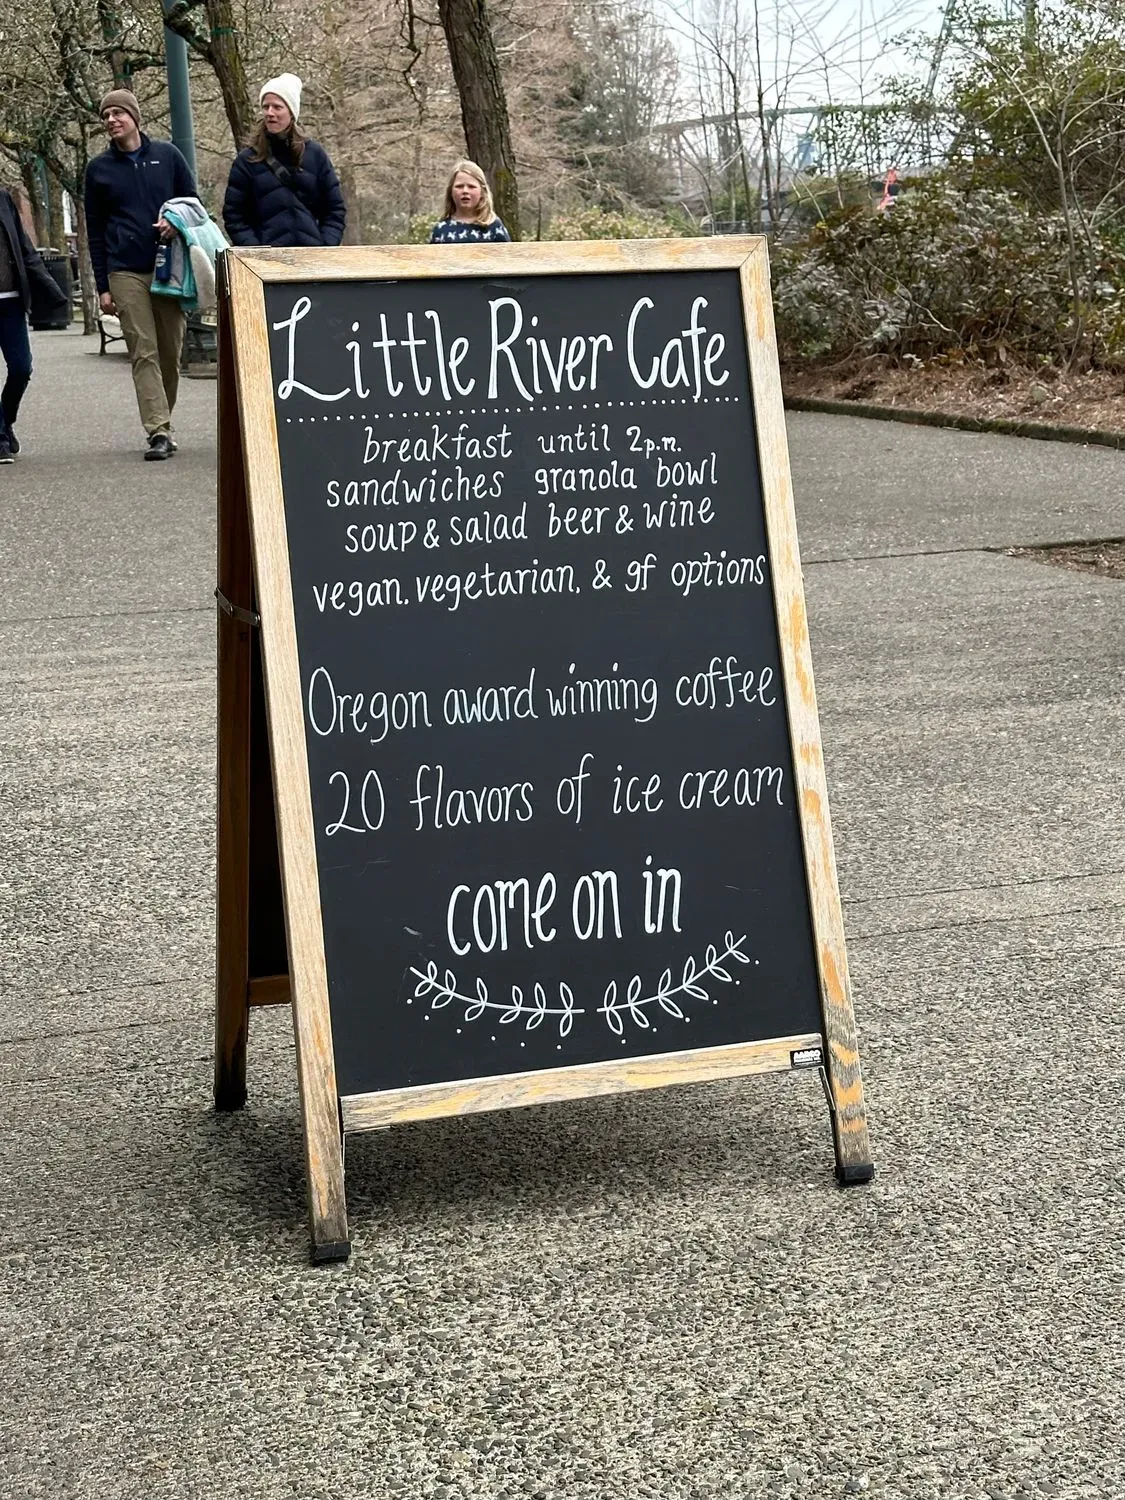 Little River Cafe
breakfast until 2p.m.
sandwiches granola bowl
soup & salad beer & wine
vegan, vegetarian, & gf options
Oregon award winning coffee
20 flavors of ice cream
come on in